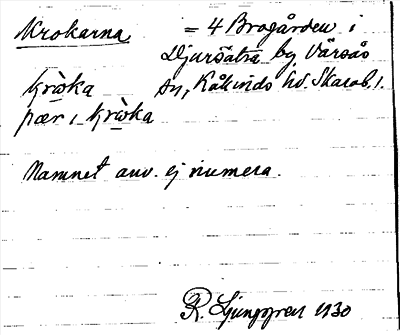 Krokarna = 4 Brogården i
Djursätra by, Värsås
krɷ̀ka sn, Kåkinds hd. Skarab. l.
pær i krɷ̀ka
Namnet anv. ej numera.
R. Ljunggren 1930